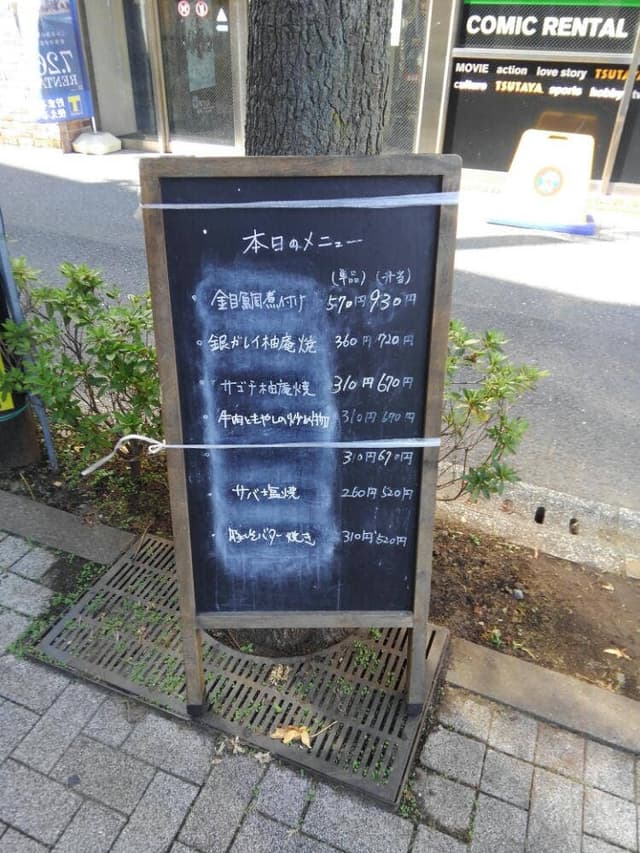 COMIC RENTAL
MOVIE action love story TSUTAYA
culture TSUTAYA sports hobby
7.26
RENTA
本日のメニュー
(単品) (弁当)
金目鯛煮付け 570円 930円
銀ガレイ柚庵焼 360円 720円
サゴチ柚庵焼 310円 670円
牛肉ともやしの炒め物 310円 670円
310円 670円
サバ塩焼 260円 520円
豚しそバター焼き 310円 520円